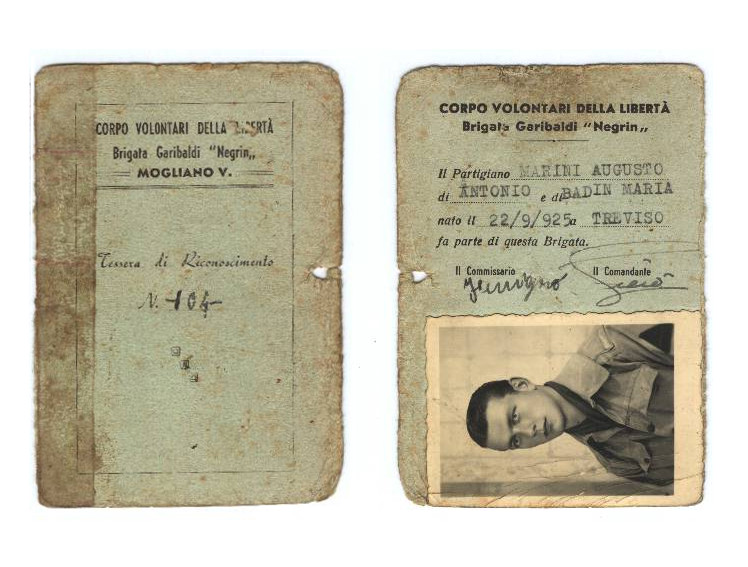 CORPO VOLONTARI DELLA LIBERTÀ
Brigata Garibaldi "Negrin„
MOGLIANO V.
Tessera di Riconoscimento
N. 104
CORPO VOLONTARI DELLA LIBERTÀ
Brigata Garibaldi "Negrin„
Il Partigiano MARINI AUGUSTO
di ANTONIO e di BADIN MARIA
nato il 22/9/925 a TREVISO
fa parte di questa Brigata.
Il Commissario Il Comandante